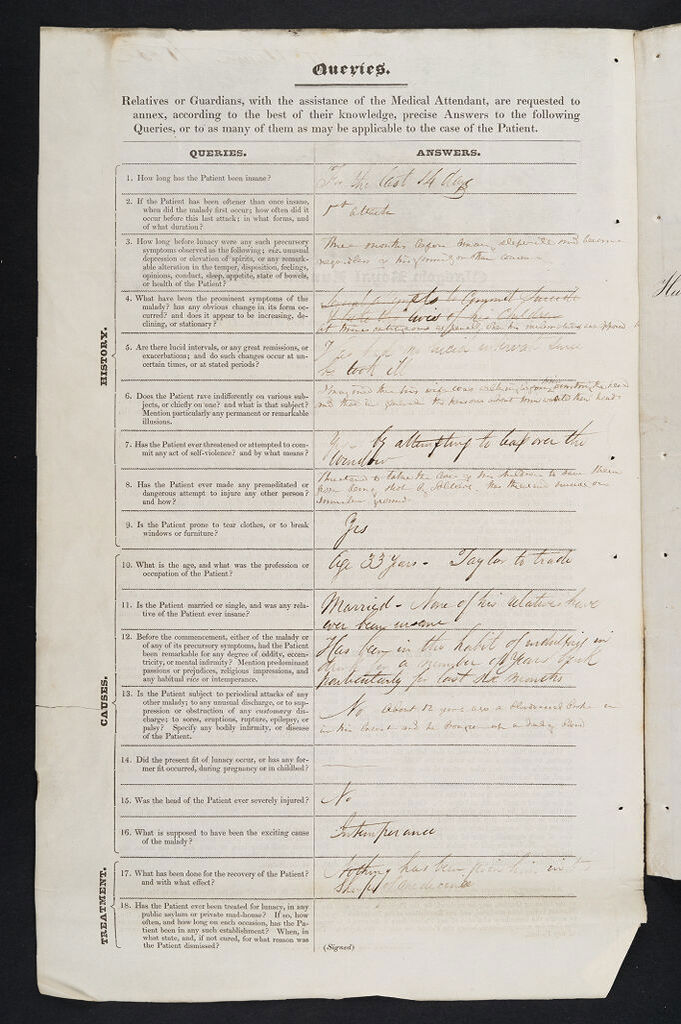 Queries.
Relatives or Guardians, with the assistance of the Medical Attendant, are requested to
annex, according to the best of their knowledge, precise Answers to the following
Queries, or to as many of them as may be applicable to the case of the Patient.
QUERIES.
ANSWERS.
HISTORY.
1. How long has the Patient been insane?
For the last 14 days
2. If the Patient has been oftener than once insane,
when did the malady first occur; how often did it
occur before this last attack; in what forms, and
of what duration?
1st attack
3. How long before lunacy were any such precursory
symptoms observed as the following: viz. unusual
depression or elevation of spirits, or any remark-
able alteration in the temper, disposition, feelings,
opinions, conduct, sleep, appetite, state of bowels,
or health of the Patient?
Three months before
4. What have been the prominent symptoms of the
malady? has any obvious change in its form oc-
curred? and does it appear to be increasing, de-
clining, or stationary?
to Commit Suicide
lives of his Children
at times outrageous
5. Are there lucid intervals, or any great remissions, or
exacerbations; and do such changes occur at un-
certain times, or at stated periods?
no lucid interval since
he took ill
6. Does the Patient rave indifferently on various sub-
jects, or chiefly on one? and what is that subject?
Mention particularly any permanent or remarkable
illusions.
his wife was
7. Has the Patient ever threatened or attempted to com-
mit any act of self-violence? and by what means?
by attempting to leap over the
window
8. Has the Patient ever made any premeditated or
dangerous attempt to injure any other person?
and how?
to take the lives of his children to save them
from being shot by Soldiers.
9. Is the Patient prone to tear clothes, or to break
windows or furniture?
Yes
CAUSES.
10. What is the age, and what was the profession or
occupation of the Patient?
Age 33 years - Taylor to trade
11. Is the Patient married or single, and was any rela-
tive of the Patient ever insane?
Married - None of his relatives have
ever been insane
12. Before the commencement, either of the malady or
of any of its precursory symptoms, had the Patient
been remarkable for any degree of oddity, eccen-
tricity, or mental infirmity? Mention predominant
passions or prejudices, religious impressions, and
any habitual vice or intemperance.
Has been in the habit of indulging in
drink for a number of years back
particularly for last six months
13. Is the Patient subject to periodical attacks of any
other malady; to any unusual discharge, or to sup-
pression or obstruction of any customary dis-
charge; to sores, eruptions, rupture, epilepsy, or
palsy? Specify any bodily infirmity, or disease
of the Patient.
No About 12 years ago a Bloodvessel broke
in his breast and he
14. Did the present fit of lunacy occur, or has any for-
mer fit occurred, during pregnancy or in childbed?
15. Was the head of the Patient ever severely injured?
No
16. What is supposed to have been the exciting cause
of the malady?
Intemperance
TREATMENT.
17. What has been done for the recovery of the Patient?
and with what effect?
Nothing has been given him in the
shape of medicine
18. Has the Patient ever been treated for lunacy, in any
public asylum or private mad-house? If so, how
often, and how long on each occasion, has the Pa-
tient been in any such establishment? When, in
what state, and, if not cured, for what reason was
the Patient dismissed?
(Signed)